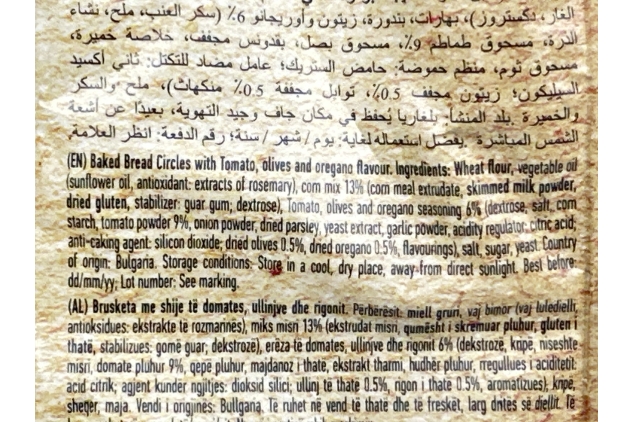 الغار، دكستروز)، بهارات، بندورة، زيتون وأوريجانو 6% (سكر العنب، ملح، نشاء
الذرة، مسحوق طماطم 9%، مسحوق بصل، بقدونس مجفف، خلاصة خميرة،
مسحوق ثوم، منظم حموضة: حامض الستريك؛ عامل مضاد للتكتل: ثاني أكسيد
السيليكون؛ زيتون مجفف 0.5%، توابل مجففة 0.5% منكهات)، ملح والسكر
والخميرة. بلد المنشأ: بلغاريا يُحفظ في مكان جاف وجيد التهوية، بعيدًا عن أشعة
الشمس المباشرة. يفضل استعماله لغاية: يوم / شهر / سنة؛ رقم الدفعة: انظر العلامة.
(EN) Baked Bread Circles with Tomato, olives and oregano flavour. Ingredients: Wheat flour, vegetable oil
(sunflower oil, antioxidant: extracts of rosemary), corn mix 13% (corn meal extrudate, skimmed milk powder,
dried gluten, stabilizer: guar gum; dextrose), Tomato, olives and oregano seasoning 6% (dextrose, salt, corn
starch, tomato powder 9%, onion powder, dried parsley, yeast extract, garlic powder, acidity regulator: citric acid;
anti-caking agent: silicon dioxide; dried olives 0.5%, dried oregano 0.5%, flavourings), salt, sugar, yeast. Country
of origin: Bulgaria. Storage conditions: Store in a cool, dry place, away from direct sunlight. Best before:
dd/mm/yy. Lot number: See marking.
(AL) Brusketa me shije të domates, ullinjve dhe rigonit. Përbërësit: miell gruri, vaj bimor (vaj luledielli,
antioksidues: ekstrakte të rozmarinës), miks misri 13% (ekstrudat misri, qumësht i skremuar pluhur, gluten i
thatë, stabilizues: gomë guar; dekstrozë), erëza të domates, ullinjve dhe rigonit 6% (dekstrozë, kripë, niseshte
misri, domate pluhur 9%, qepë pluhur, majdanoz i thatë, ekstrakt tharmi, hudhër pluhur, rregullues i aciditetit:
acid citrik; agjent kundër ngjitjes: dioksid silici; ullinj të thatë 0.5%, rigon i thatë 0.5%, aromatizues), kripë,
sheqer, maja. Vendi i origjinës: Bullgaria. Të ruhet në vend të thatë dhe të freskët, larg dritës së diellit. Të